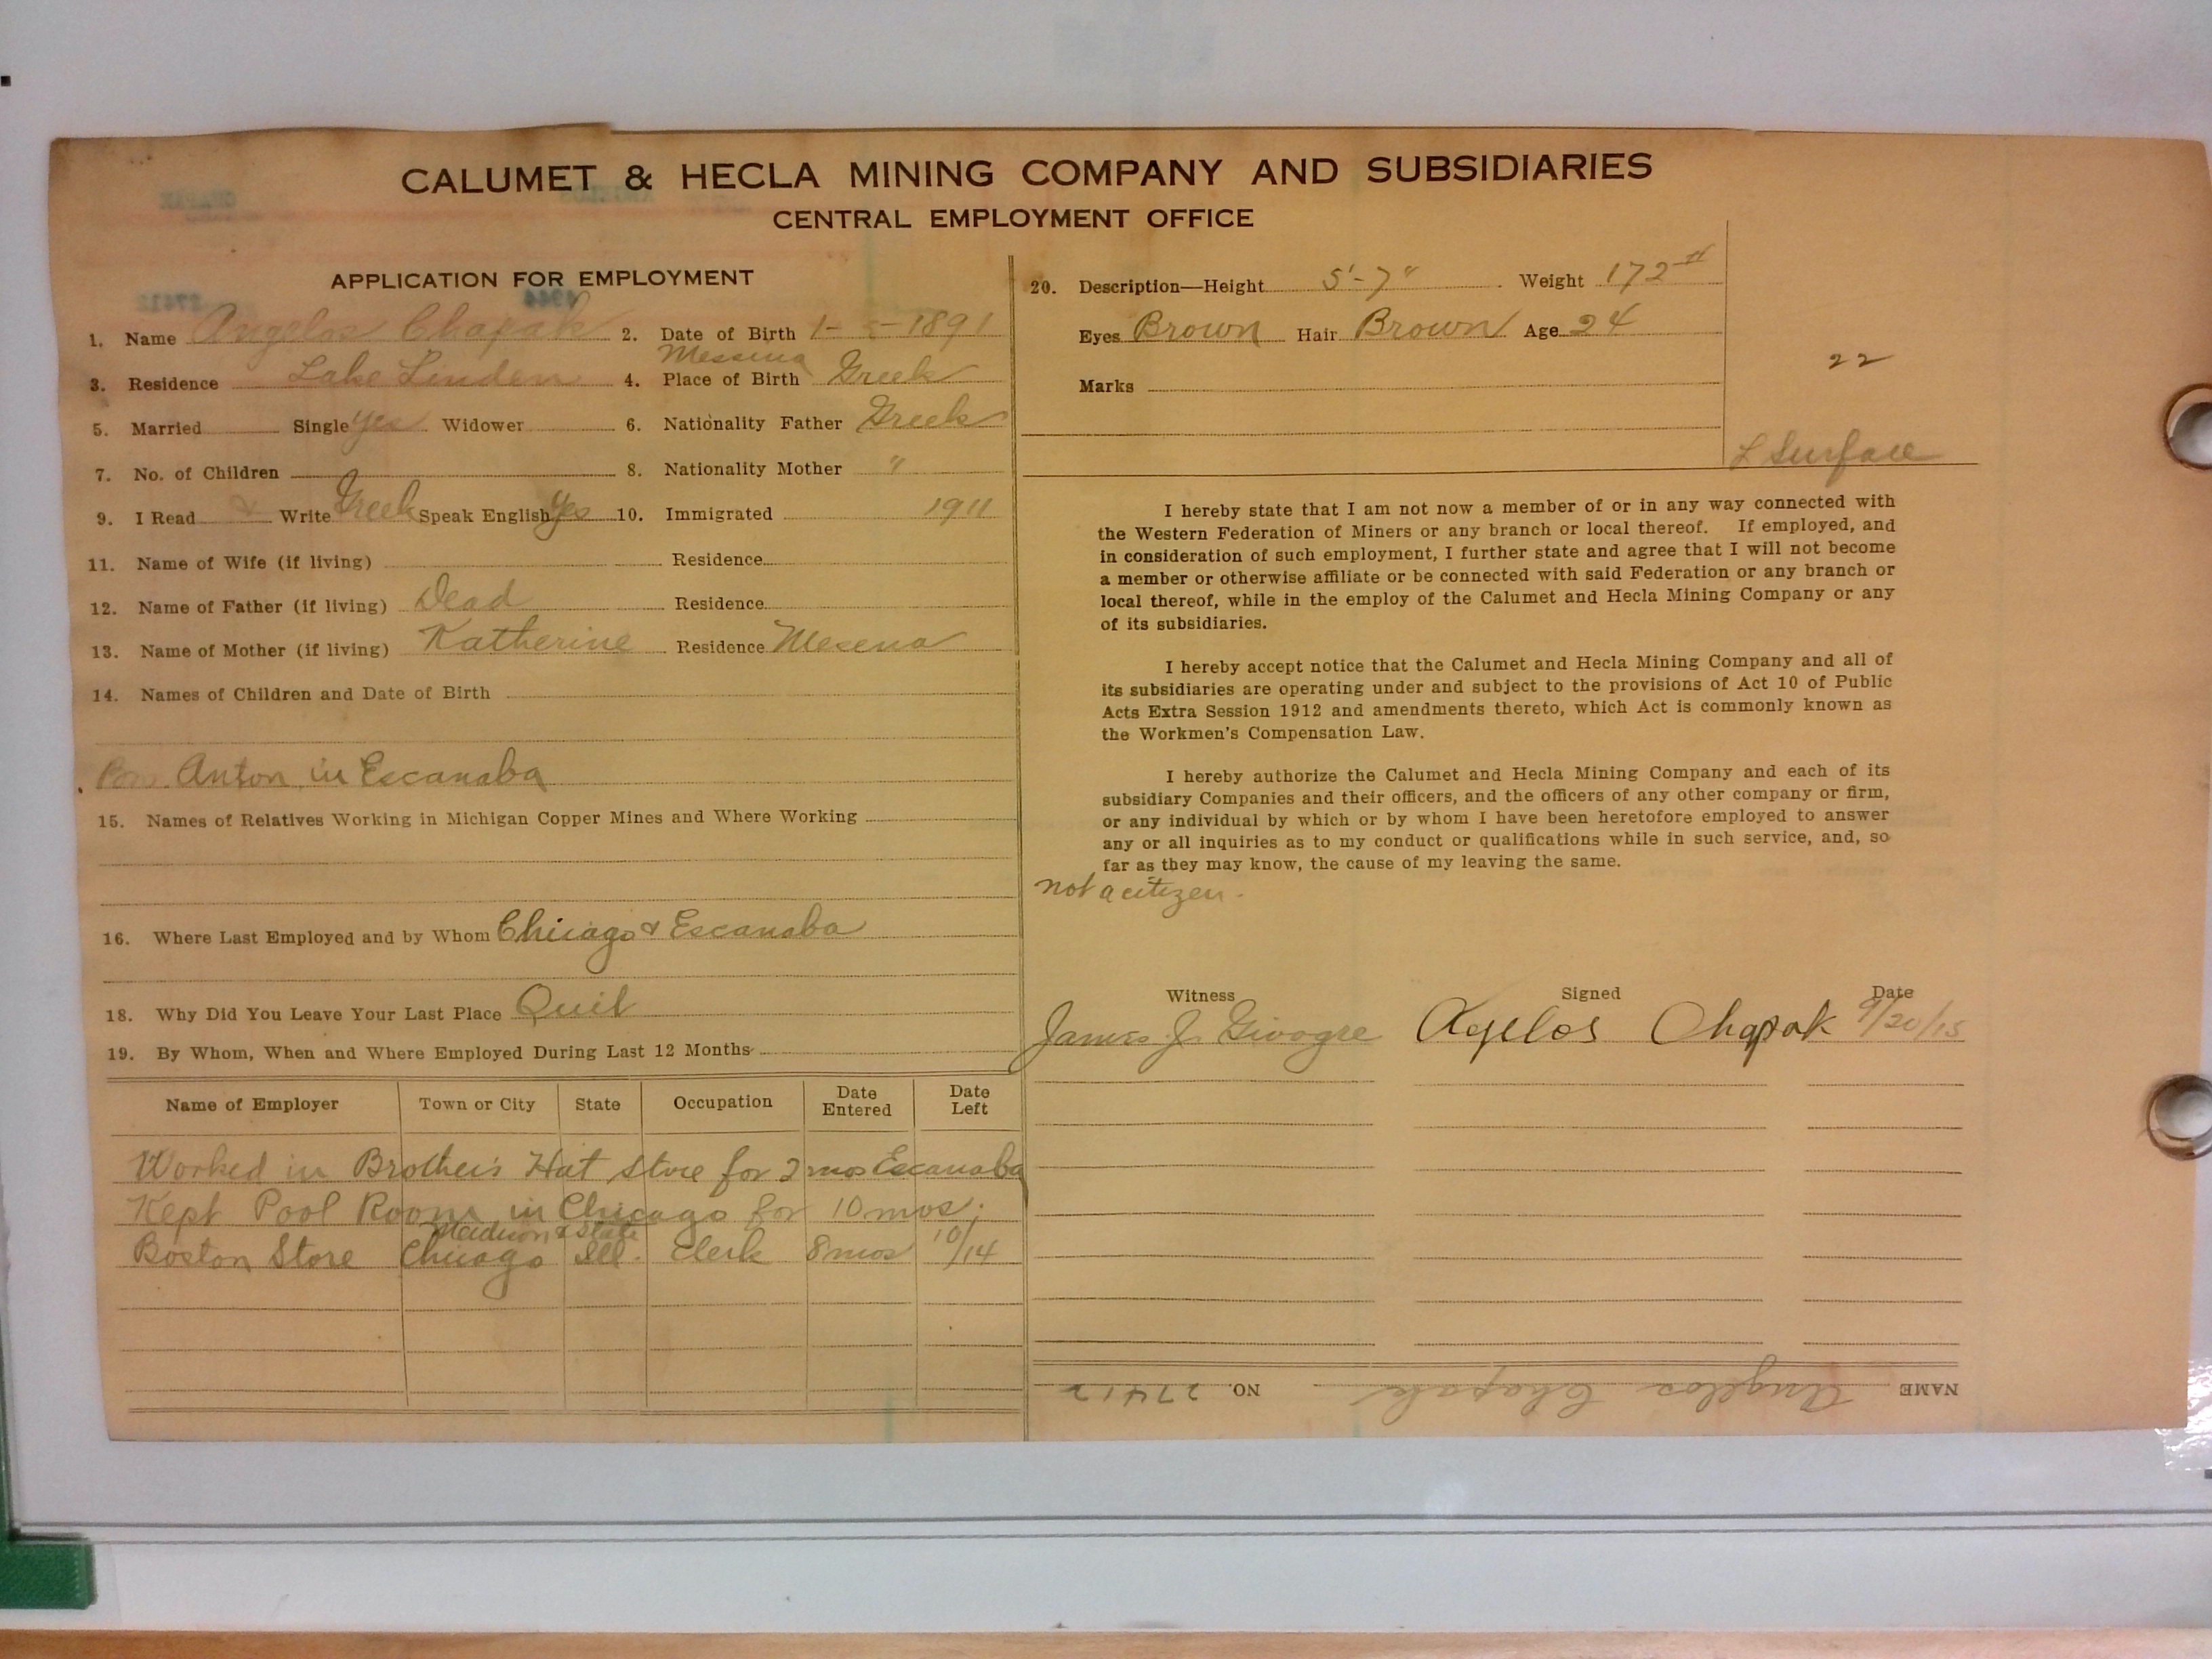 CALUMET & HECLA MINING COMPANY AND SUBSIDIARIES
CENTRAL EMPLOYMENT OFFICE
APPLICATION FOR EMPLOYMENT
1. Name Angelos Chapak 2. Date of Birth 1-5-1891
Messina
3. Residence Lake Linden 4. Place of Birth Greek
5. Married Single yes Widower 6. Nationality Father Greek
7. No. of Children 8. Nationality Mother "
9. I Read & Write Greek Speak English yes 10. Immigrated 1911
11. Name of Wife (if living) Residence
12. Name of Father (if living) Dead Residence
13. Name of Mother (if living) Katherine Residence Mesena
14. Names of Children and Date of Birth
Anton in Escanaba
15. Names of Relatives Working in Michigan Copper Mines and Where Working
16. Where Last Employed and by Whom Chicago & Escanaba
18. Why Did You Leave Your Last Place Quit
19. By Whom, When and Where Employed During Last 12 Months
Name of Employer Town or City State Occupation Date Entered Date Left
Worked in Brother's Hat Store for 2 mos Escanaba
Kept Pool Room in Chicago for 10 mos.
Madison & State
Boston Store Chicago Ill. Clerk 8 mos 10/14
20. Description—Height 5'-7" Weight 172#
Eyes Brown Hair Brown Age 24
22
Marks
L Surface
I hereby state that I am not now a member of or in any way connected with
the Western Federation of Miners or any branch or local thereof. If employed, and
in consideration of such employment, I further state and agree that I will not become
a member or otherwise affiliate or be connected with said Federation or any branch or
local thereof, while in the employ of the Calumet and Hecla Mining Company or any
of its subsidiaries.
I hereby accept notice that the Calumet and Hecla Mining Company and all of
its subsidiaries are operating under and subject to the provisions of Act 10 of Public
Acts Extra Session 1912 and amendments thereto, which Act is commonly known as
the Workmen's Compensation Law.
I hereby authorize the Calumet and Hecla Mining Company and each of its
subsidiary Companies and their officers, and the officers of any other company or firm,
or any individual by which or by whom I have been heretofore employed to answer
any or all inquiries as to my conduct or qualifications while in such service, and, so
far as they may know, the cause of my leaving the same.
not a citizen.
Witness Signed Date
James J. Givogre Agelos Chapak 9/20/15
NAME Angelos Chapak NO. 27412